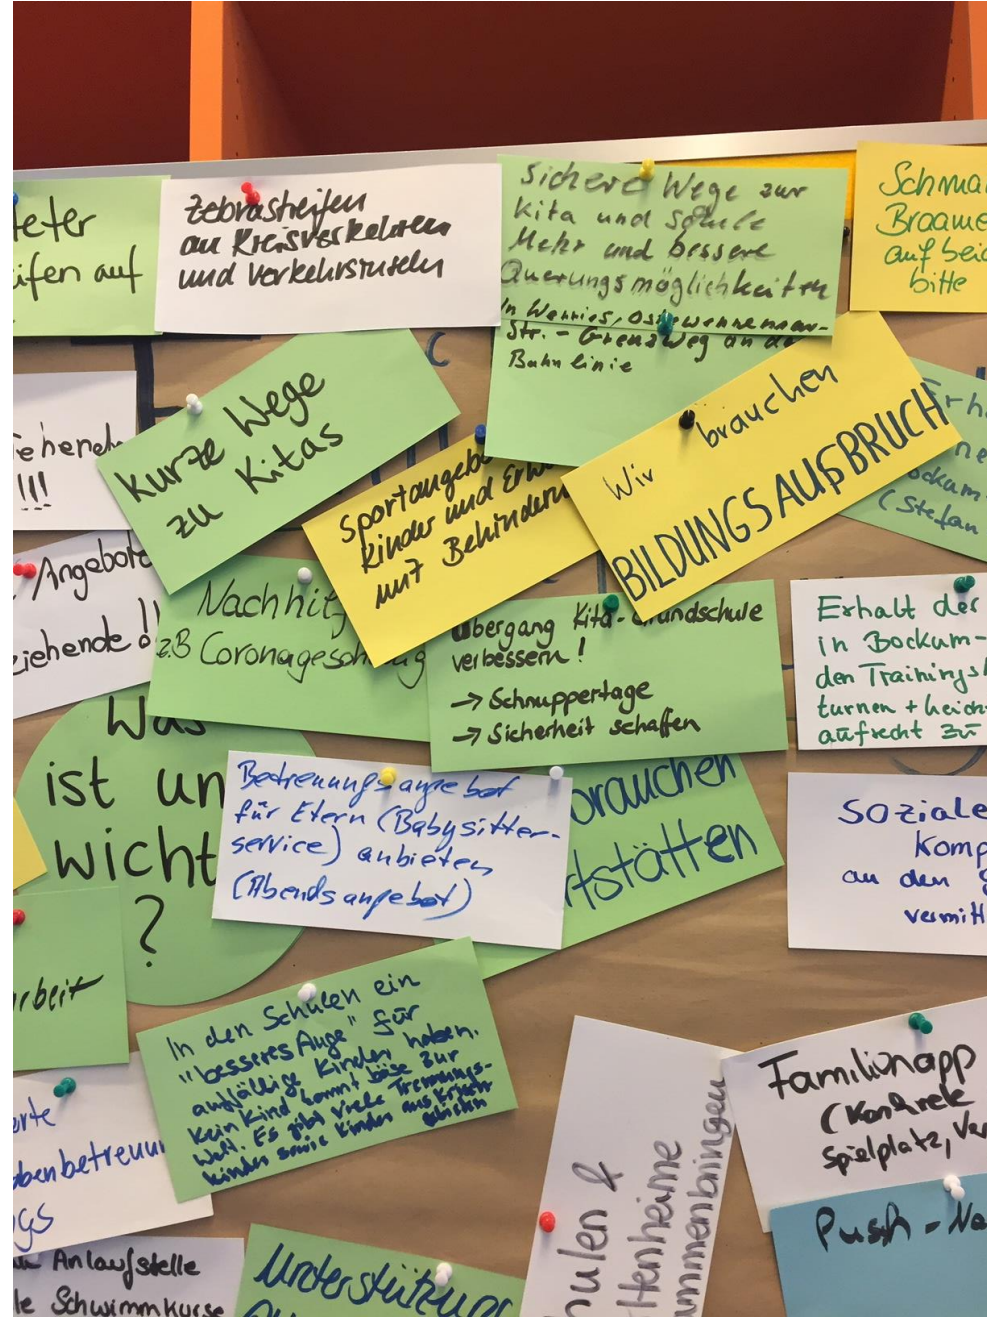 Zebrastreifen
an Kreisverkehren
und Verkehrsinseln
ifen auf
Sichere Wege zur
Kita und Schule
Mehr und bessere
Querungsmöglichkeiten
In Werries, Ostwennemar-
Str. - Grenzweg an der
Bahnlinie
Schma
Braame
auf beid
bitte
kurze Wege
zu Kitas
iehende
!!!
Sportangebo
Kinder und Erw
mit Behindern
Wir brauchen
BILDUNGSAUFBRUCH
Erh
ne
ockum-
(Stefan
Angebote
ziehende!!
Nachhil
z.B Coronagesch
Übergang Kita-Grundschule
verbessern!
→ Schnuppertage
→ Sicherheit schaffen
Erhalt der
in Bockum-
den Trainingsb
turnen + Leicht
aufrecht zu
Was
ist un
wicht
?
Betreuungsangebot
für Eltern (Babysitter-
service) anbieten
(Abendsangebot)
brauchen
rtstätten
Soziale
Komp
an den
vermitt
rbeit
In den Schulen ein
"besseres Auge" für
auffällige Kinder haben.
Kein Kind kommt böse zur
Welt. Es gibt viele Trennungs-
kinder sowie Kinder aus Kriegs
gebieten
erte
benbetreuun
gs
Familienapp
(Konkrete
Spielplatz, Ver
Push - Na
hulen &
ltenheime
ammenbringen
Anlaufstelle
le Schwimmkurse
Unterstützung